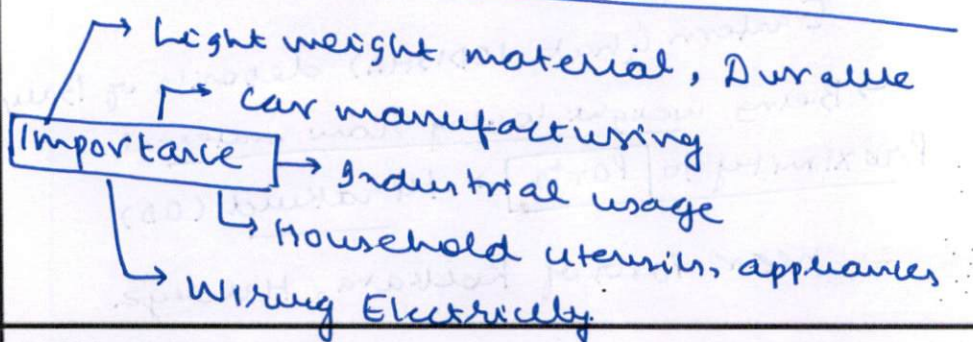 Light weight material, Durable
Car manufacturing
Importance
Industrial usage
Household utensils, appliances
Wiring Electricity